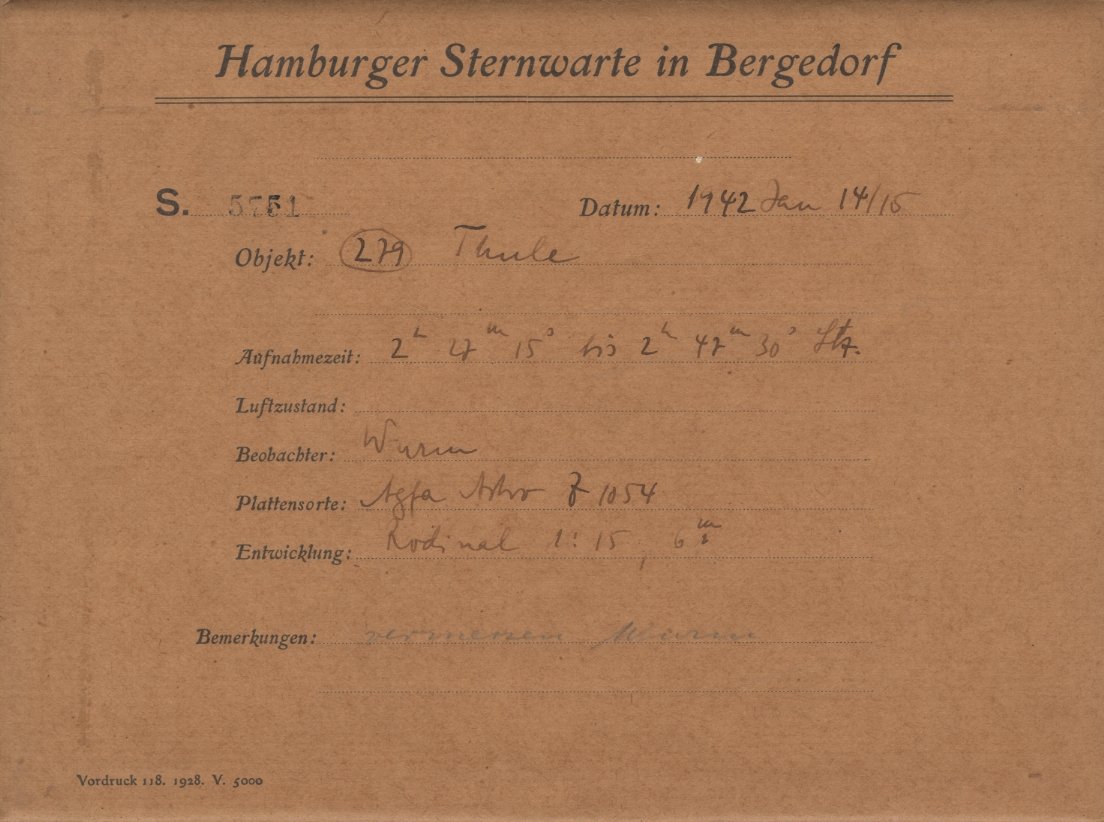 Hamburger Sternwarte in Bergedorf
S. 5751 Datum: 1942 Jan 14/15
Objekt: 279 Thule
Aufnahmezeit: 2h 27m 15s bis 2h 47m 30s Stz.
Luftzustand:
Beobachter: Wurm
Plattensorte: Agfa Astro Z 1054
Entwicklung: Rodinal 1:15, 6m
Bemerkungen: vermessen Wurm
Vordruck 118. 1928. V. 5000